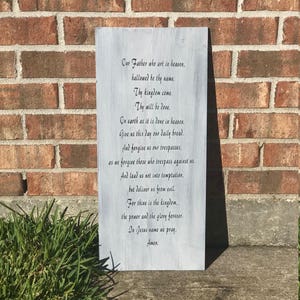 Our Father who art in heaven,
hallowed be thy name.
Thy kingdom come.
Thy will be done.
On earth as it is done in heaven.
Give us this day our daily bread.
And forgive us our trespasses,
as we forgive those who trespass against us.
And lead us not into temptation,
but deliver us from evil.
For thine is the kingdom,
the power and the glory forever.
In Jesus name we pray,
Amen.